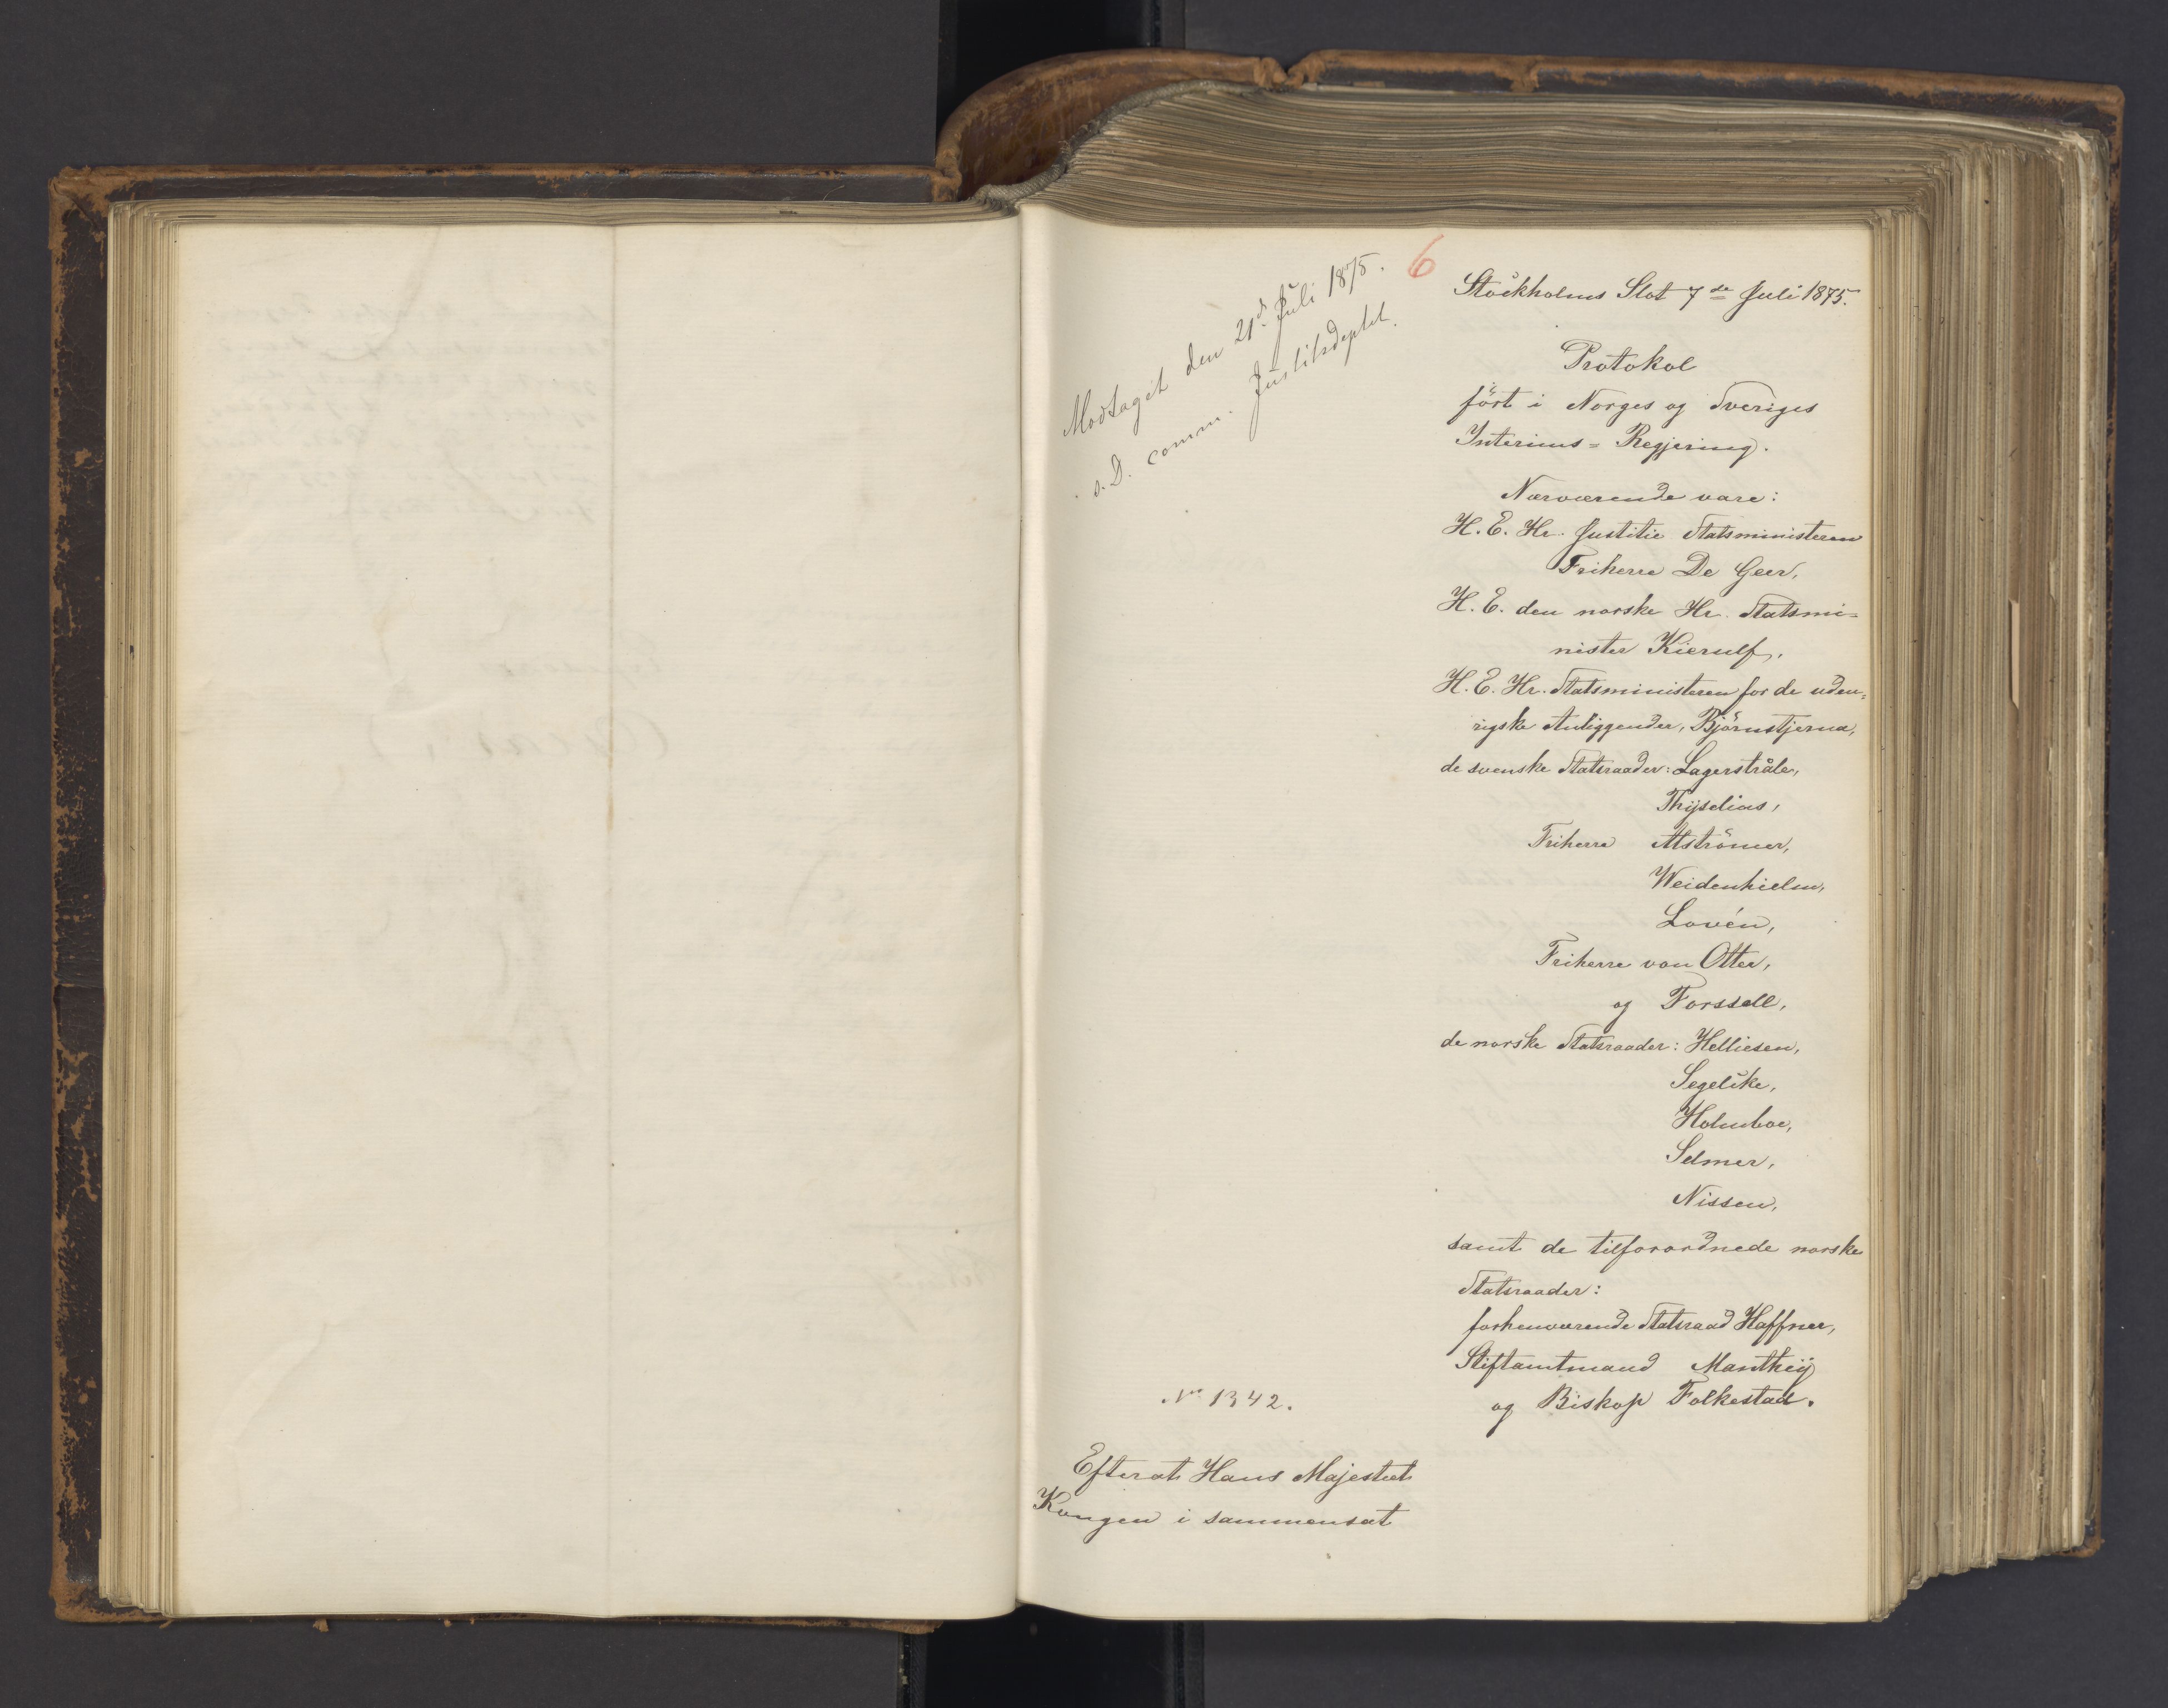 Modtaget den 21d Juli 1875.
s. D. comm. Justitsdeptet.
6
Stockholms Slot 7de Juli 1875.
Protokol
fört i Norges og Sveriges
Interims=Regjering.
Nærværende vare:
H. E. Hr. Justitie Statsministeren
Friherre De Geer,
H. E. den norske Hr. Statsmi=
nister Kierulf,
H. E. Hr. Statsministeren for de uden=
rigske Anliggender, Björnstjerna,
de svenske Statsraader: Lagerstråle,
Thyselius,
Friherre Alströmer,
Weidenhielm,
Lovén,
Friherre von Otter,
og Forssell,
de norske Statsraader: Helliesen,
Segelcke,
Holmboe,
Selmer,
Nissen,
samt de tilforordnede norske
Statsraader:
forhenværende Statsraad Haffner,
Stiftamtmand Manthey
og Biskop Folkestad.
No 1342.
Efterat Hans Majestæt
Kongen i sammensat